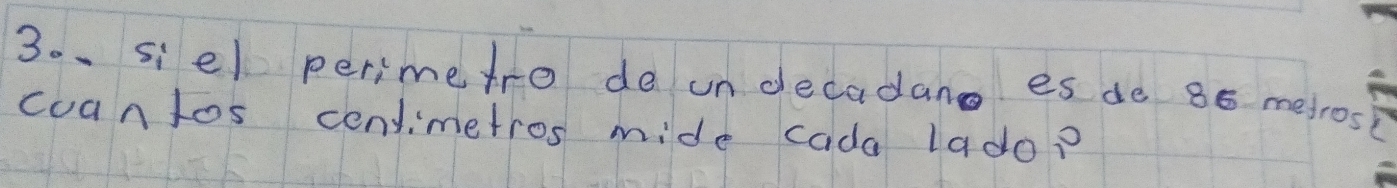 3.- si el perimetro de un decadano es de 86 metros¿
cuantos centimetros mide cada lado?